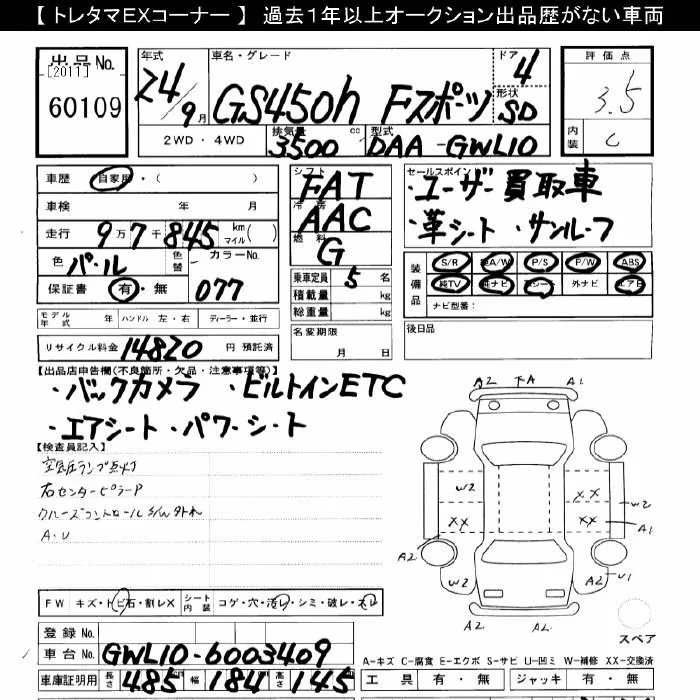 【 トレタマEXコーナー 】 過去１年以上オークション出品歴がない車両
出品 No.
[2011]
60109
年式
24/9月
車名・グレード
GS450h Fスポーツ
ドア
4
形状
SD
評価点
3.5
内装
C
2WD ・ 4WD
排気量
3500 cc
型式
DAA-GWL10
車歴 自家用・( )
車検 年 月
走行 9万7千845 km マイル( )
色 パール
色替
カラーNo. 077
保証書 有・無
シフト
FAT
冷房
AAC
燃料
G
乗車定員 5 名
積載量 kg
総重量 kg
名変期限
月 日
セールスポイント
・ユーザー買取車
・革シート ・サンルーフ
装備品
S/R 純A/W P/S P/W ABS
純TV 純ナビ 革シート 外ナビ エアB
ナビ型番:
後日品
モデル年式 年 ハンドル 左・右 ディーラー・並行
リサイクル料金 14820 円 預託済
【出品店申告欄(不良箇所・欠品・注意事項等)】
・バックカメラ ・ビルトインETC
・エアシート・パワーシート
【検査員記入】
空気圧ランプ点灯
右センターピラーP
クルーズコントロール
A・U
A2 下A A1
W2
XX
XX
XX
W2
A1
A2
W2
U1
A2
A2
スペア
FW キズ・トビ石・割レX
シート内装 コゲ・穴・汚レ・シミ・破レ・スレ
登録 No.
車台 No. GWL10-6003409
車庫証明用 長さ 485 幅 184 高さ 145
A-キズ C-腐食 E-エクボ S-サビ U-凹ミ W-補修 XX-交換済
工具 有・無 ジャッキ 有・無